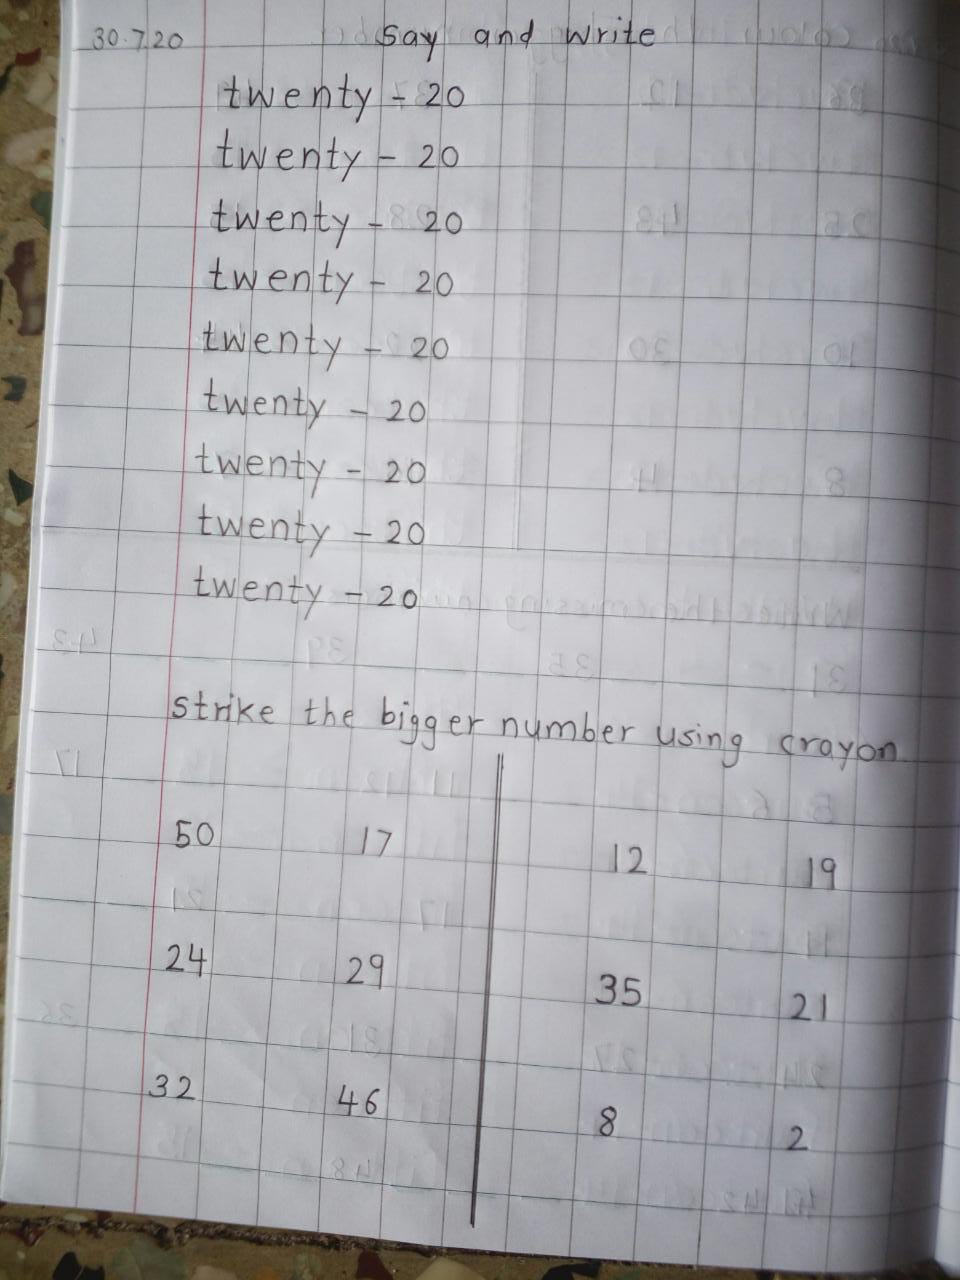 30.7.20 Say and write
twenty - 20
twenty - 20
twenty - 20
twenty - 20
twenty - 20
twenty - 20
twenty - 20
twenty - 20
twenty - 20
strike the bigger number using crayon
50 17 12 19
24 29 35 21
32 46 8 2